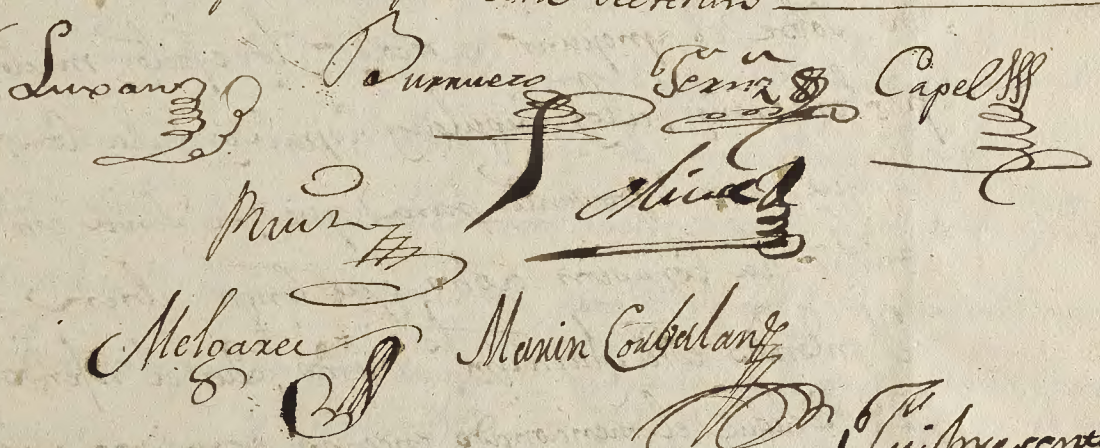 Luxan Burruezo Fern.z Capel
Ruiz Oliua
Melgarex
Marin Corbalan